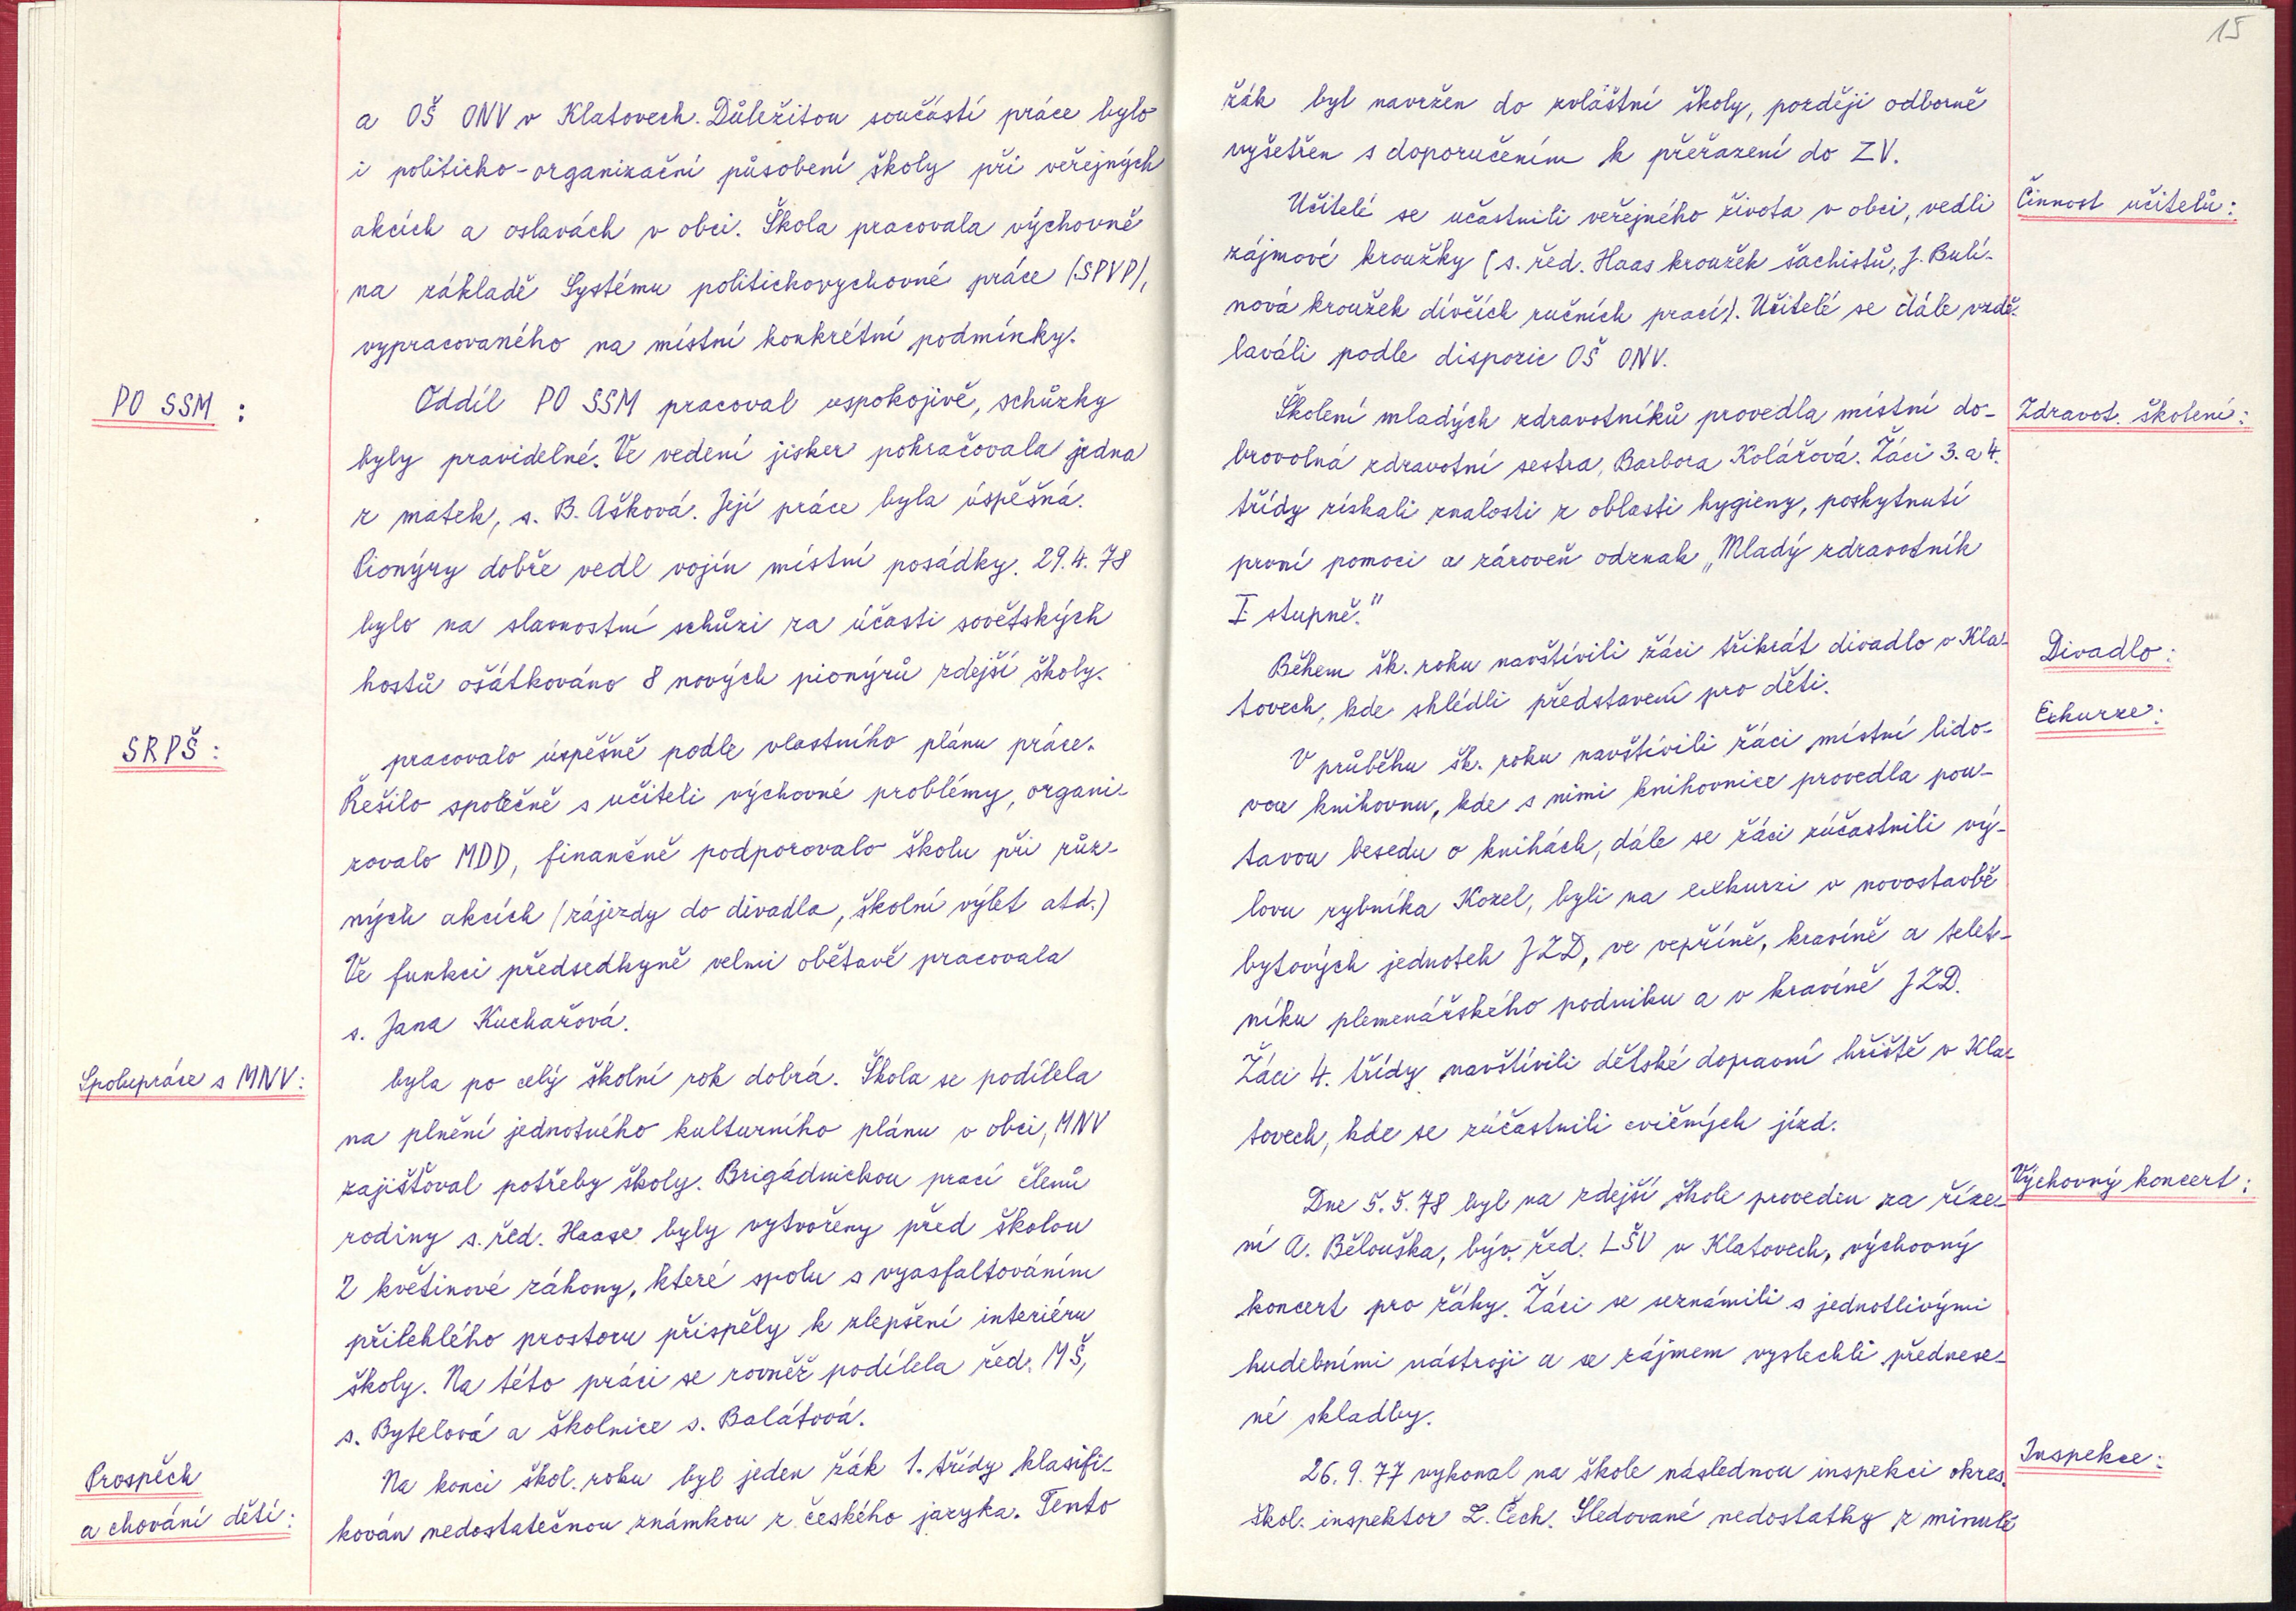 a OŠ ONV v Klatovech. Důležitou součástí práce bylo
i politicko-organizační působení školy při veřejných
akcích a oslavách v obci. Škola pracovala výchovně
na základě Systému politickovychovné práce (SPVP),
vypracovaného na místní konkrétní podmínky.
PO SSM :
Oddíl PO SSM pracoval uspokojivě, schůzky
byly pravidelné. Ve vedení jisker pokračovala jedna
z matek, s. B. Ašková. Její práce byla úspěšná.
Pionýry dobře vedl vojín místní posádky. 29.4.78
bylo na slavnostní schůzi za účasti sovětských
hostů ošátkováno 8 nových pionýrů zdejší školy.
SRPŠ :
pracovalo úspěšně podle vlastního plánu práce.
Řešilo společně s učiteli výchovné problémy, organi-
zovalo MDD, finančně podporovalo školu při růz-
ných akcích (zájezdy do divadla, školní výlet atd.)
Ve funkci předsedkyně velmi obětavě pracovala
s. Jana Kuchařová.
Spolupráce s MNV:
byla po celý školní rok dobrá. Škola se podílela
na plnění jednotného kulturního plánu v obci, MNV
zajišťoval potřeby školy. Brigádnickou prací členů
rodiny s. řed. Haase byly vytvořeny před školou
2 květinové záhony, které spolu s vyasfaltováním
přilehlého prostoru přispěly k zlepšení interiéru
školy. Na této práci se rovněž podílela řed. MŠ,
s. Bytelová a školnice s. Balátová.
Prospěch
a chování dětí:
Na konci škol. roku byl jeden žák 1. třídy klasifi-
kován nedostatečnou známkou z českého jazyka. Tento
15
žák byl navržen do zvláštní školy, později odborně
vyšetřen s doporučením k přeřazení do ZV.
Činnost učitelů:
Učitelé se učastnili veřejného života v obci, vedli
zájmové kroužky (s. řed. Haas kroužek šachistů, J. Bulí-
nová kroužek dívčích ručních prací). Učitelé se dále vzdě-
laváli podle dispozic OŠ ONV.
Zdravot. školení:
Školení mladých zdravotníků provedla místní do-
brovolná zdravotní sestra, Barbora Kolářová. Žáci 3. a 4.
třídy získali znalosti z oblasti hygieny, poskytnutí
první pomoci a zároveň odznak „Mladý zdravotník
I. stupně."
Divadlo:
Během šk. roku navštívili žáci třikrát divadlo v Kla-
tovech, kde shlédli představení pro děti.
Exkurze:
V průběhu šk. roku navštívili žáci místní lido-
vou knihovnu, kde s nimi knihovnice provedla pou-
tavou besedu o knihách, dále se žáci zúčastnili vý-
lovu rybníka Kozel, byli na exkurzi v novostavbě
bytových jednotek JZD, ve vepříně, kravíně a telet-
níku plemenářského podniku a v kravíně JZD.
Žáci 4. třídy navštívili dětské dopravní hřiště v Kla-
tovech, kde se zúčastnili cvičných jízd.
Výchovný koncert:
Dne 5.5.78 byl na zdejší škole proveden za říze-
ní A. Bělouška, býv. řed. LŠU v Klatovech, výchovný
koncert pro žáky. Žáci se seznámili s jednotlivými
hudebními nástroji a se zájmem vyslechli přednese-
né skladby.
Inspekce:
26.9.77 vykonal na škole následnou inspekci okres.
škol. inspektor Z. Čech. Sledované nedostatky z minulé